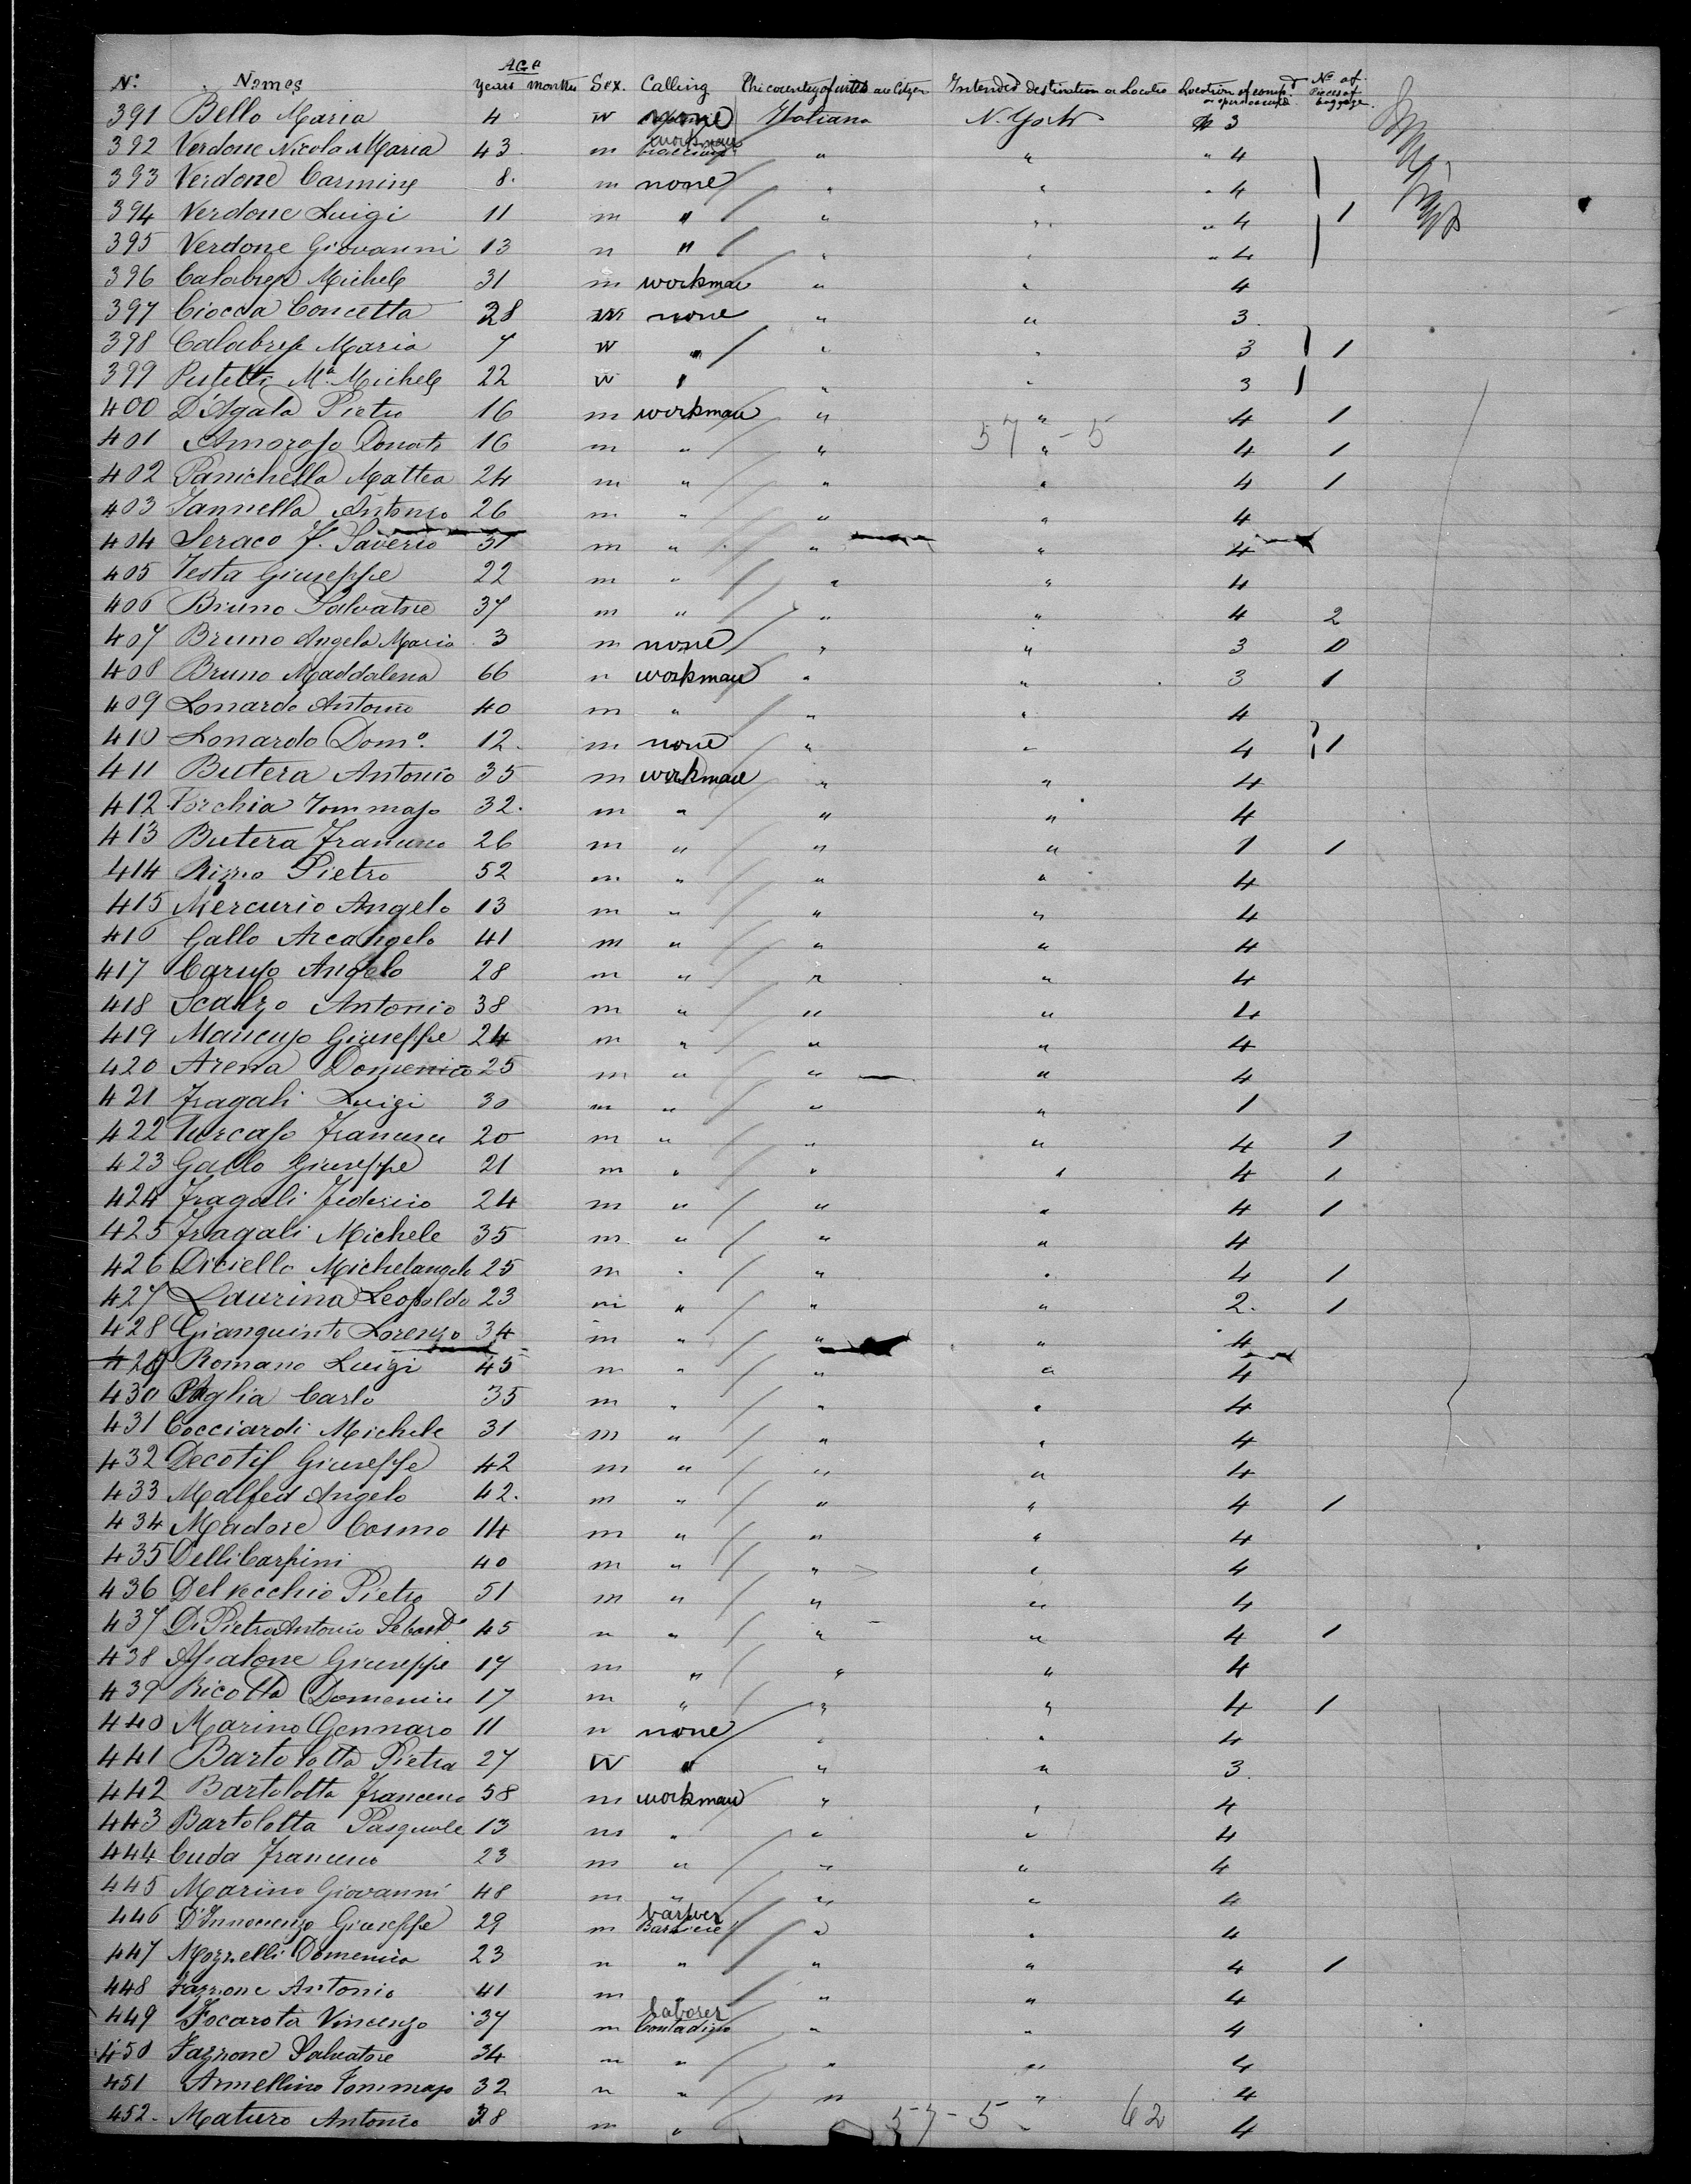 AGE
No. Names years months Sex. Calling The country of which are Citizen Intended destination or Location Location of comp. No. of Pieces of baggage.
391 Bello Maria 4 w none Italiana N. York 3
392 Verdone Nicola Maria 43 m workman " " " 4
393 Verdone Carmine 8. m none " " " 4
394 Verdone Luigi 11 m " " " " 4 1
395 Verdone Giovanni 13 m " " " " 4
396 Calabrese Michele 31 m workman " " 4
397 Ciocca Concetta 28 w none " " 3
398 Calabrese Maria 7 w " " " 3 1
399 Ma. Michele 22 w " " " 3
400 D'Agata Pietro 16 m workman " " 4 1
57-5
401 Amoroso Donato 16 m " " " 4 1
402 Panichella Mattea 24 m " " " 4 1
403 Iannella Antonio 26 m " " " 4
404 Seraco F. Saverio 31 m " " " 4
405 Testa Giuseppe 22 m " " " 4
406 Bruno Salvatore 37 m " " " 4 2
407 Bruno Angela Maria 3 m none " " 3 0
408 Bruno Maddalena 66 n workman " " 3 1
409 Lonardo Antonio 40 m " " " 4
410 Lonardo Domo. 12. m none " " 4 1
411 Butera Antonio 35 m workman " " 4
412 Porchia Tommaso 32. m " " " 4
413 Butera Francesco 26 m " " " 1 1
414 Rizzo Pietro 52 m " " " 4
415 Mercurio Angelo 13 m " " " 4
416 Gallo Arcangelo 41 m " " " 4
417 Caruso Angelo 28 m " " " 4
418 Scalzo Antonio 38 m " " " 4
419 Mancuso Giuseppe 24 m " " " 4
420 Arena Domenico 25 m " " " 4
421 Fragali Luigi 30 m " " " 1
422 Turcaso Francesco 20 m " " " 4 1
423 Gallo Giuseppe 21 m " " " 4 1
424 Fragali Federico 24 m " " " 4 1
425 Fragali Michele 35 m " " " 4
426 Diciello Michelangelo 25 m " " " 4 1
427 Laurina Leopoldo 23 m " " " 2. 1
428 Gianquinto Lorenzo 34 m " " " 4
429 Romano Luigi 45 m " " " 4
430 Paglia Carlo 35 m " " " 4
431 Cocciardi Michele 31 m " " " 4
432 Decotis Giuseppe 42 m " " " 4
433 Malfed Angelo 42. m " " " 4 1
434 Madore Cosmo 14 m " " " 4
435 Delli Carpini 40 m " " " 4
436 Del vecchio Pietro 51 m " " " 4
437 Di Pietrantonio Sebast. 45 n " " " 4 1
438 Assalone Giuseppe 17 m " " " 4
439 Ricotta Domenico 17 m " " " 4 1
440 Marino Gennaro 11 n none " " 4
441 Bartolotta Pietra 27 W " " " 3
442 Bartolotta Francesco 58 m workman " " 4
443 Bartolotta Pasquale 13 m " " " 4
444 Cuda Francesco 23 m " " " 4
445 Marino Giovanni 48 m " " " 4
446 D'Innocenzo Giuseppe 29 m barber Barbiere " " 4
447 Mozzelli Domenico 23 n " " " 4 1
448 Fazzone Antonio 41 m " " " 4
449 Focarota Vincenzo 37 m laborer Contadino " " 4
450 Fazzone Salvatore 34 n " " " 4
451 Armellino Tommaso 32 n " " " 4
452. Maturo Antonio 38 m " " 4
57-5 62